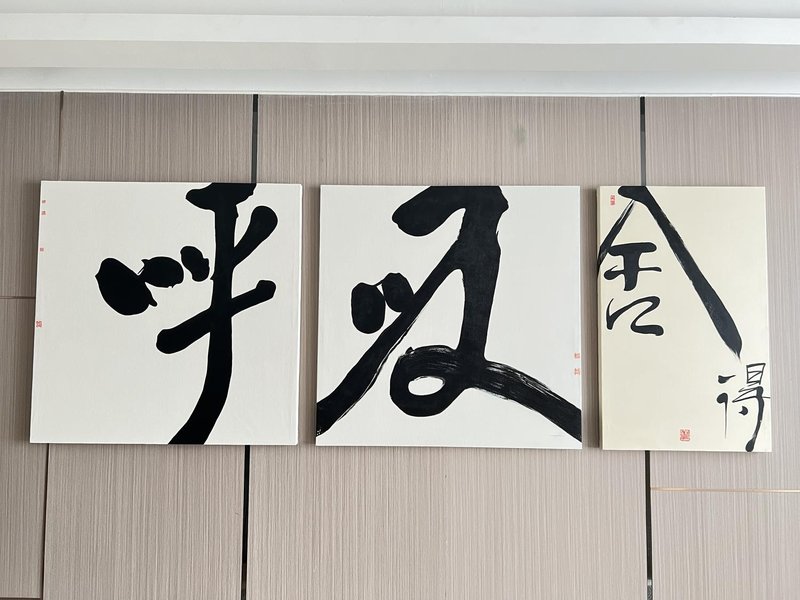 呼
吸
舍
得